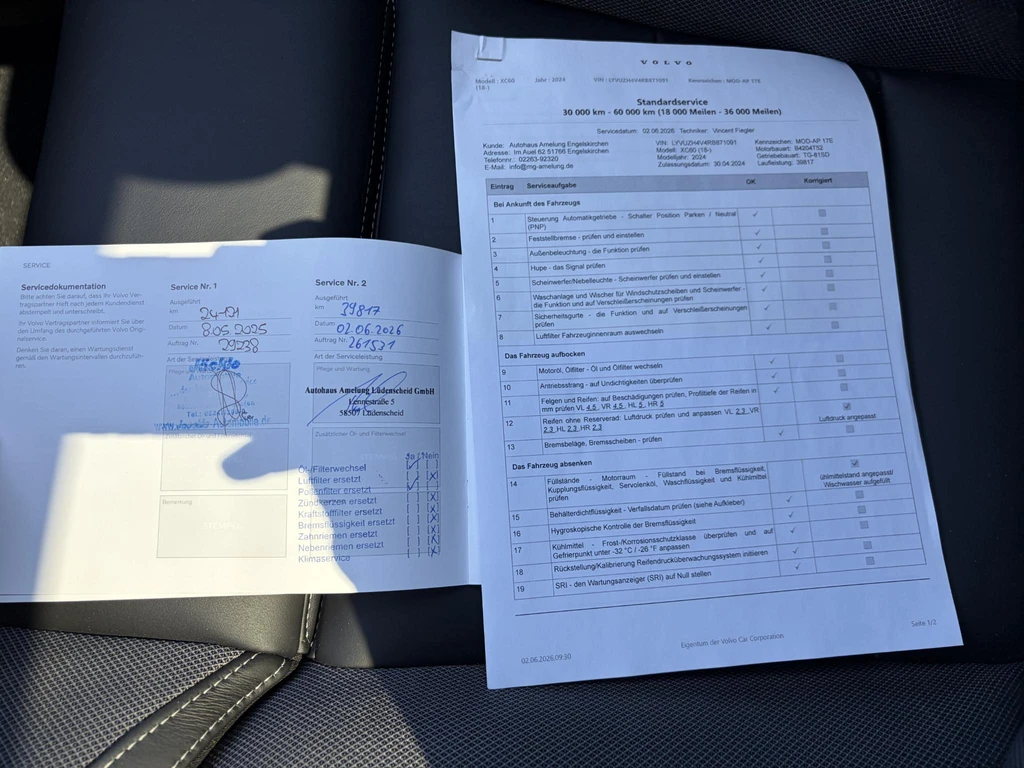 SERVICE
Servicedokumentation
Bitte achten Sie darauf, dass Ihr Volvo Ver-
tragspartner Heft nach jedem Kundendienst
abstempelt und unterschreibt.
Ihr Volvo Vertragspartner informiert Sie über
den Umfang des durchgeführten Volvo Origi-
nalservice.
Denken Sie daran, einen Wartungsdienst
gemäß den Wartungsintervallen durchzufüh-
ren.
Service Nr. 1
Ausgeführt
km
Datum 8.05 2025
Auftrag Nr. 29238
Art der
Bemerkung
Service Nr. 2
Ausgeführt
km 39817
Datum 02.06.2026
Auftrag Nr. 261531
Art der Serviceleistung
Pflege und Wartung
Autohaus Amelung Lüdenscheid GmbH
58507 Lüdenscheid
Zusätzlicher Öl- und Filterwechsel
Ja Nein
Öl-/Filterwechsel
Luftfilter ersetzt
Pollenfilter ersetzt
Zündkerzen ersetzt
Kraftstofffilter ersetzt
Bremsflüssigkeit ersetzt
Zahnriemen ersetzt
Nebenriemen ersetzt
Klimaservice
VOLVO
Modell : XC60 Jahr : 2024 VIN : LYVUZH4V4RB871091 Kennzeichen : MOD-AP 17E
(18-)
Standardservice
30 000 km - 60 000 km (18 000 Meilen - 36 000 Meilen)
Servicedatum: 02.06.2026 Techniker: Vincent Fiegler
Kunde: Autohaus Amelung Engelskirchen VIN: LYVUZH4V4RB871091 Kennzeichen: MOD-AP 17E
Adresse: Im Auel 62 51766 Engelskirchen Modell: XC60 (18-) Motorbauart: B4204T52
Telefonnr.: 02263-92320 Modelljahr: 2024 Getriebebauart: TG-81SD
E-Mail: info@mg-amelung.de Zulassungsdatum: 30.04.2024 Laufleistung: 39817
Eintrag Serviceaufgabe OK Korrigiert
Bei Ankunft des Fahrzeugs
1 Steuerung Automatikgetriebe - Schalter Position Parken / Neutral
(PNP) ✓
2 Feststellbremse - prüfen und einstellen ✓
3 Außenbeleuchtung - die Funktion prüfen ✓
4 Hupe - das Signal prüfen ✓
5 Scheinwerfer/Nebelleuchte - Scheinwerfer prüfen und einstellen ✓
6 Waschanlage und Wischer für Windschutzscheiben und Scheinwerfer -
die Funktion und auf Verschleißerscheinungen prüfen ✓
7 Sicherheitsgurte - die Funktion und auf Verschleißerscheinungen
prüfen ✓
8 Luftfilter Fahrzeuginnenraum auswechseln ✓
Das Fahrzeug aufbocken
9 Motoröl, Ölfilter - Öl und Ölfilter wechseln ✓
10 Antriebsstrang - auf Undichtigkeiten überprüfen ✓
11 Felgen und Reifen: auf Beschädigungen prüfen, Profiltiefe der Reifen in
mm prüfen VL 4.5, VR 4.5, HL 5, HR 5 ✓
12 Reifen ohne Reserverad: Luftdruck prüfen und anpassen VL 2.3, VR
2.3, HL 2.3, HR 2.3 Luftdruck angepasst
13 Bremsbeläge, Bremsscheiben - prüfen ✓
Das Fahrzeug absenken
14 Füllstände - Motorraum - Füllstand bei Bremsflüssigkeit,
Kupplungsflüssigkeit, Servolenöl, Waschflüssigkeit und Kühlmittel
prüfen
ühlmittelstand angepasst/
Wischwasser aufgefüllt
15 Behälterdichtflüssigkeit - Verfallsdatum prüfen (siehe Aufkleber) ✓
16 Hygroskopische Kontrolle der Bremsflüssigkeit ✓
17 Kühlmittel - Frost-/Korrosionsschutzklasse überprüfen und auf
Gefrierpunkt unter -32 °C / -26 °F anpassen ✓
18 Rückstellung/Kalibrierung Reifendrucküberwachungssystem initiieren ✓
19 SRI - den Wartungsanzeiger (SRI) auf Null stellen ✓
Seite 1/2
Eigentum der Volvo Car Corporation
02.06.2026,09:30